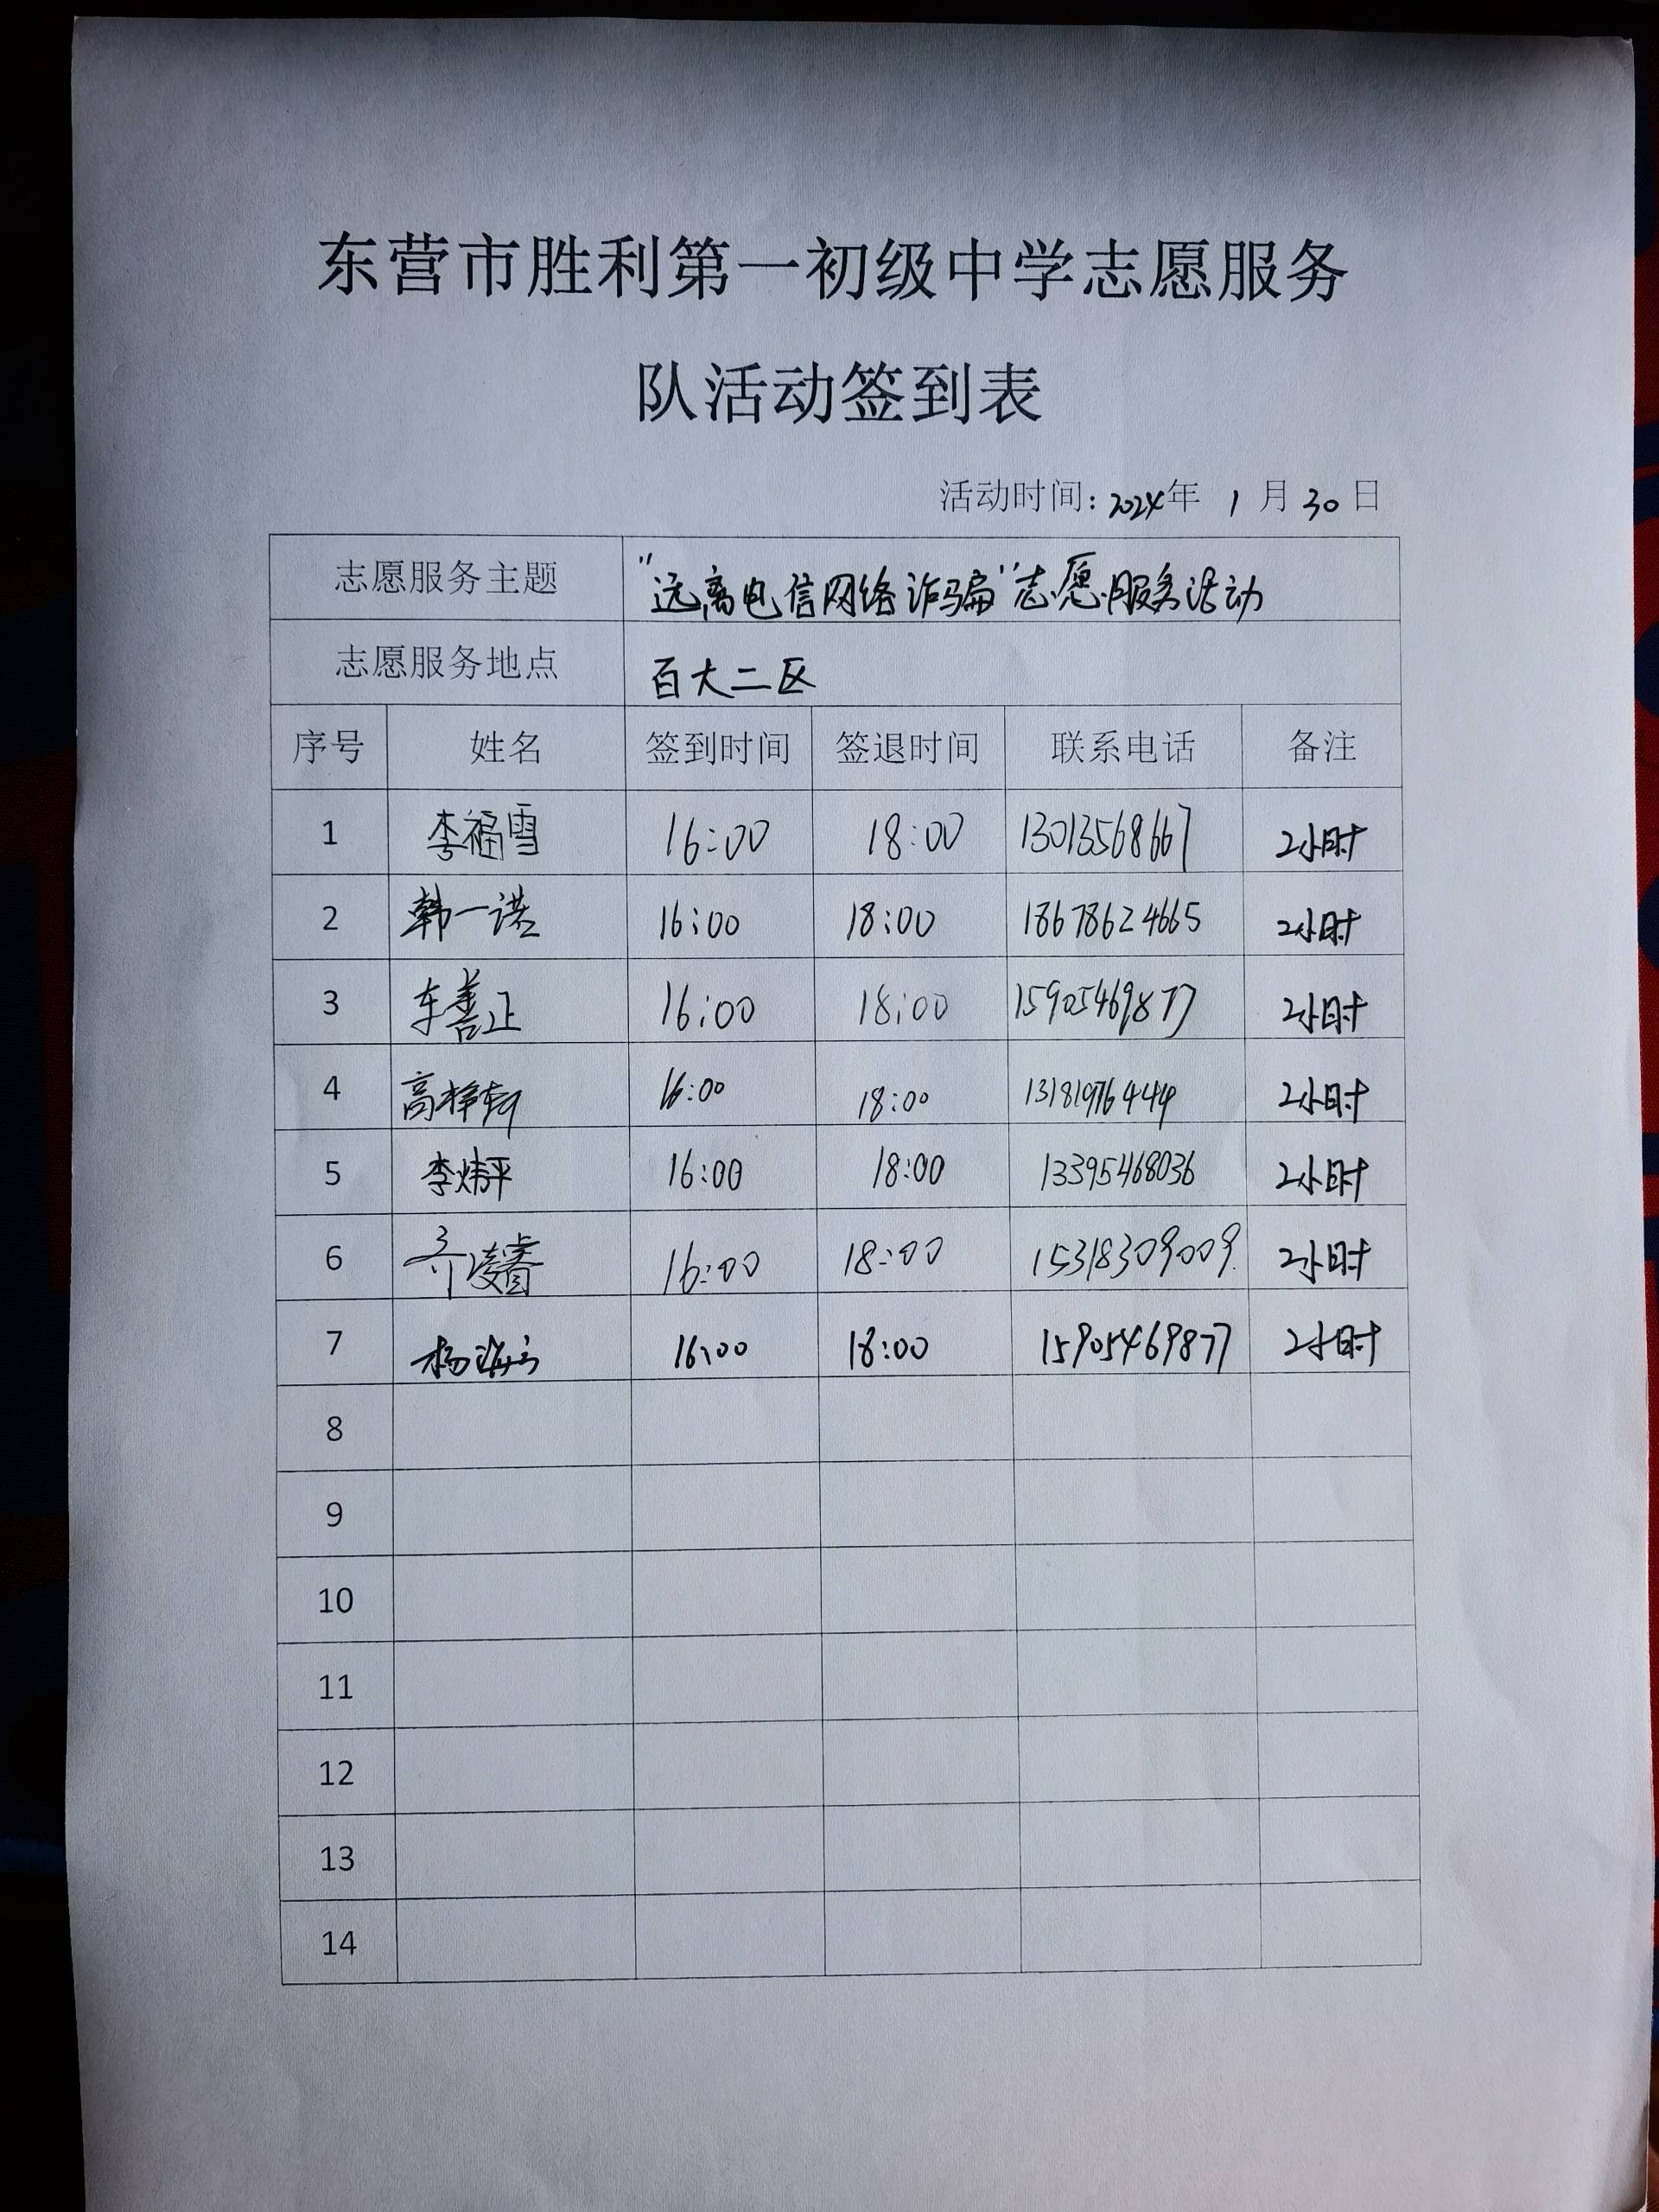 东营市胜利第一初级中学志愿服务
队活动签到表
活动时间：2024年 1 月 30 日
志愿服务主题 "远离电信网络诈骗"志愿服务活动
志愿服务地点 百大二区
序号 姓名 签到时间 签退时间 联系电话 备注
1 李福雪 16:00 18:00 13013568667 2小时
2 韩一诺 16:00 18:00 18678624665 2小时
3 车善正 16:00 18:00 15905469877 2小时
4 16:00 18:00 13181976444 2小时
5 李炜平 16:00 18:00 13395468036 2小时
6 齐凌睿 16:00 18:00 15318309009 2小时
7 16:00 18:00 15905469877 2小时
8
9
10
11
12
13
14